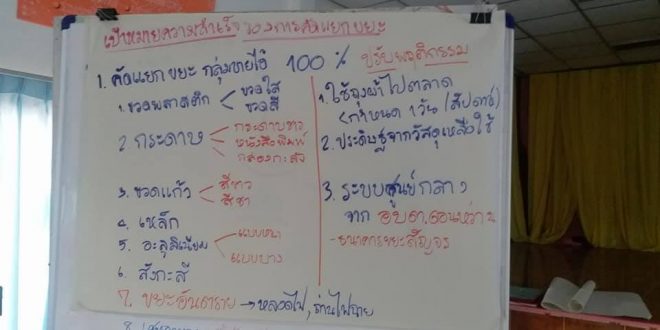 เป้าหมายความสำเร็จ ของการคัดแยกขยะ
1. คัดแยก ขยะ กลุ่มขายได้ 100 %
1. ขวดพลาสติก < ขวดใส
ขวดสี
2. กระดาษ < กระดาษขาว
หนังสือพิมพ์
กล่องกระดาษ
3. ขวดแก้ว < สีขาว
สีชา
4. เหล็ก
5. อะลูมิเนียม < แบบหนา
แบบบาง
6. สังกะสี
7. ขยะอันตราย → หลอดไฟ, ถ่านไฟฉาย
ปรับพฤติกรรม
1. ใช้ถุงผ้าไปตลาด
<กำหนด 1 วัน/สัปดาห์>
2. ประดิษฐ์จากวัสดุเหลือใช้
3. ระบบศูนย์กลาง
จาก อบต.ดอนหว่าน
- ธนาคารขยะสัญจร